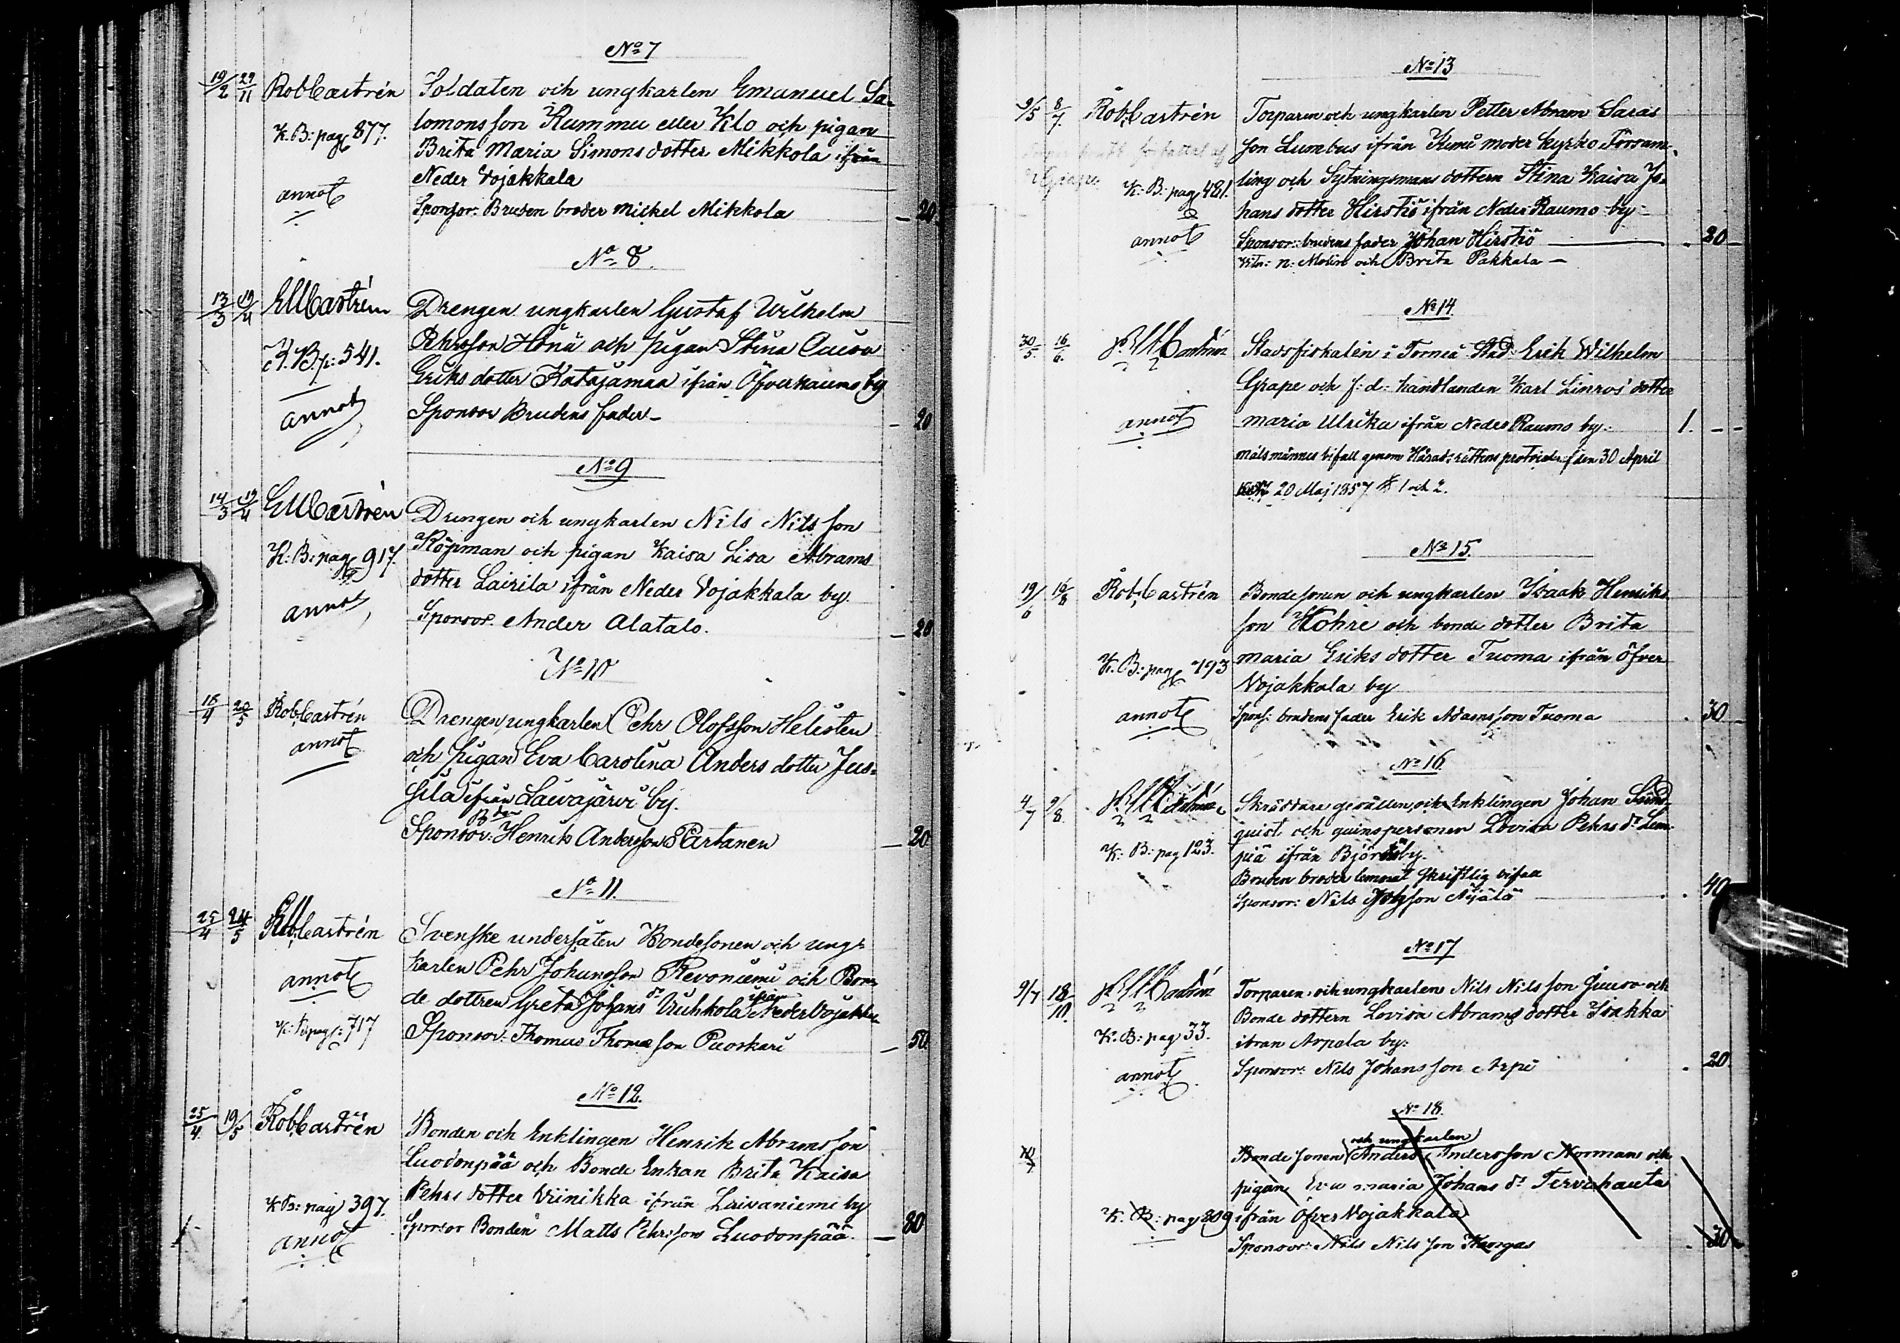 No 7
19/2 29/11 Rob Castrén Soldaten och ungkarlen Emanuel Sa-
K. B: pag 877. lomonsson Kummu eller Klo och pigan
Brita Maria Simons dotter Mikkola ifrån
annot Neder Vojakkala
Sponsor: Bruden broder Mickel Mikkola — 20
No 8.
13/3 19/4 EM Castrén Drengen ungkarlen Gustaf Wilhelm
K. B. p: 541. Pehrsson och pigan Stina
Eriks dotter Katajamaa ifrån Öfverraumo by
annot Sponsor Brudens fader — 20
No 9
14/3 19/4 EM Castrén Drengen och ungkarlen Nils Nils son
K: B: pag 917. Köpman och pigan Kaisa Lisa Abrams
dotter Lairila ifrån Neder Vojakkala by.
annot Sponsor. Ander Alatalo. — 20
No 10
15/4 20/5 Rob Castrén Drengen ungkarlen Pehr Olofsson Helisten
annot och pigan Eva Carolina Anders dotter Jus-
sila ifrån Laivajärvi by.
Sponsor: Henrik Andersson Partanen — 20
No 11.
25/4 24/5 Castrén Svenske undersåten Bondesonen och ung-
annot karlen Pehr Johansson Revoniemi och Bon-
de dottren Greta Johans dr Ruhkola ifrån Neder Vojakkala
K: B pag: 717 Sponsor: Thomas Thomasson Puoskari — 50
No 12.
25/4 19/5 Rob Castrén Bonden och Enklingen Henrik Abramsson
Luodonpää och Bonde Enkan Brita Kaisa
K B: pag 397. Pehrs dotter Viinikka ifrån Laivaniemi by
annot Sponsor Bonden Matts Pehrsson Luodonpää. — 80
No 13
9/5 8/7. Rob Castrén Torparen och ungkarlen Petter Abram
son Lumbus ifrån Kemi moder kyrko Försam-
K: B: pag 481. ling och Sytningsmans dottern Stina Kaisa Jo-
hans dotter Hirstiö ifrån Neder Raumo by
annot Sponsor: brudens fader Johan Hirstiö — 20
n: Molin och Brita Pakkala —
No 14
30/5 16/6. Stadsfiskalen i Torneå Stad Erik Wilhelm
Grape och f: d: handlanden Karl Linros' dotter
annot maria Ulrika ifrån Neder Raumo by. 1. —
målsmännes bifall genom Härads-rättens protocoler den 30 April
20 Maj 1857 § 1 och 2.
No 15.
19/6 16/8 Rob Castrén Bondesonen och ungkarlen Isaak Henriks
son Kohre och bonde dotter Brita
K. B: pag 193 maria Eriks dotter Tuoma ifrån Öfver
Vojakkala by
annot Spons: brudens fader Erik Adamsson Tuoma 30
No 16
4/7 9/8. Skräddare gesällen och Enklingen Johan Sund-
quist och quinspersonen Lovisa Pehrs dr Lam-
K. B: pag 123. piä ifrån Björkö by.
broder lemnat skriftlig bifall
Sponsor: Nils Äijälä 40
No 17
9/7 18/10. Torparen och ungkarlen Nils Nils son Juuso och
Bonde dottern Lovisa Abrams dotter Isakka
K. B: pag 33. ifrån Arpela by:
annot Sponsor: Nils Johans son Arpi 20
No 18.
och ungkarlen
Bonde sonen Anders Andersson Norman och
pigan Eva maria Johans dr Tervahauta
K. B: pag 309 ifrån Öfver Vojakkala
Sponsor: Nils Nils son Kangas 30